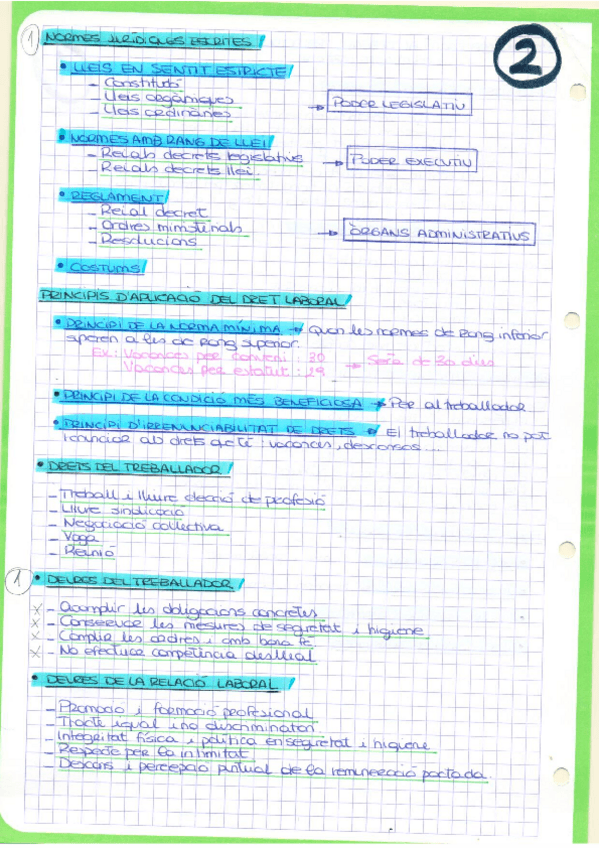 1 NORMES JURÍDIQUES ESCRITES
2
• LLEIS EN SENTIT ESTRICTE
- Constitució
- Lleis orgàniques
- Lleis ordinàries
→ PODER LEGISLATIU
• NORMES AMB RANG DE LLEI
- Reials decrets legislatius
- Reials decrets llei.
→ PODER EXECUTIU
• REGLAMENT
- Reial decret
- Ordres ministerials
- Resolucions
→ ÒRGANS ADMINISTRATIUS
• COSTUMS
PRINCIPIS D'APLICACIÓ DEL DRET LABORAL
• PRINCIPI DE LA NORMA MÍNIMA → Quan les normes de rang inferior
superen a les de rang superior.
Ex: Vacances per conveni : 30
Vacances per estatut : 29
→ Seria de 30 dies
• PRINCIPI DE LA CONDICIÓ MÉS BENEFICIOSA → Per al treballador
• PRINCIPI D'IRRENUNCIABILITAT DE DRETS → El treballador no pot
renunciar als drets que té : vacances, descansos...
• DRETS DEL TREBALLADOR
- Treball i lliure elecció de professió
- Lliure sindicació
- Negociació collectiva
- Vaga
- Reunió
1 • DEURES DEL TREBALLADOR
x - Acomplir les obligacions concretes
x - Conservar les mesures de seguretat i higiene
x - Complir les ordres i amb bona fe.
x - No efectuar competència deslleial
• DEURES DE LA RELACIÓ LABORAL
- Promoció i formació professional
- Tracte igual i no discriminatori
- Integritat física i política en seguretat i higiene
- Respecte per la intimitat
- Descans i percepció puntual de la remuneració pactada.